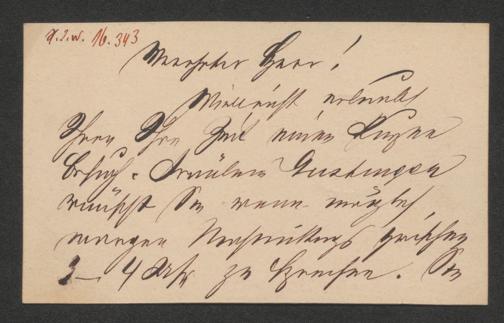 I. N. 16.343
Werther Herr!
Vielleicht erlaubt
Ihnen Ihre Zeit einen kurzen
Besuch. Fräulein
wünscht Sie wenn möglich
morgen Nachmittags zwischen
3 – 4 Uhr zu sprechen. Sie